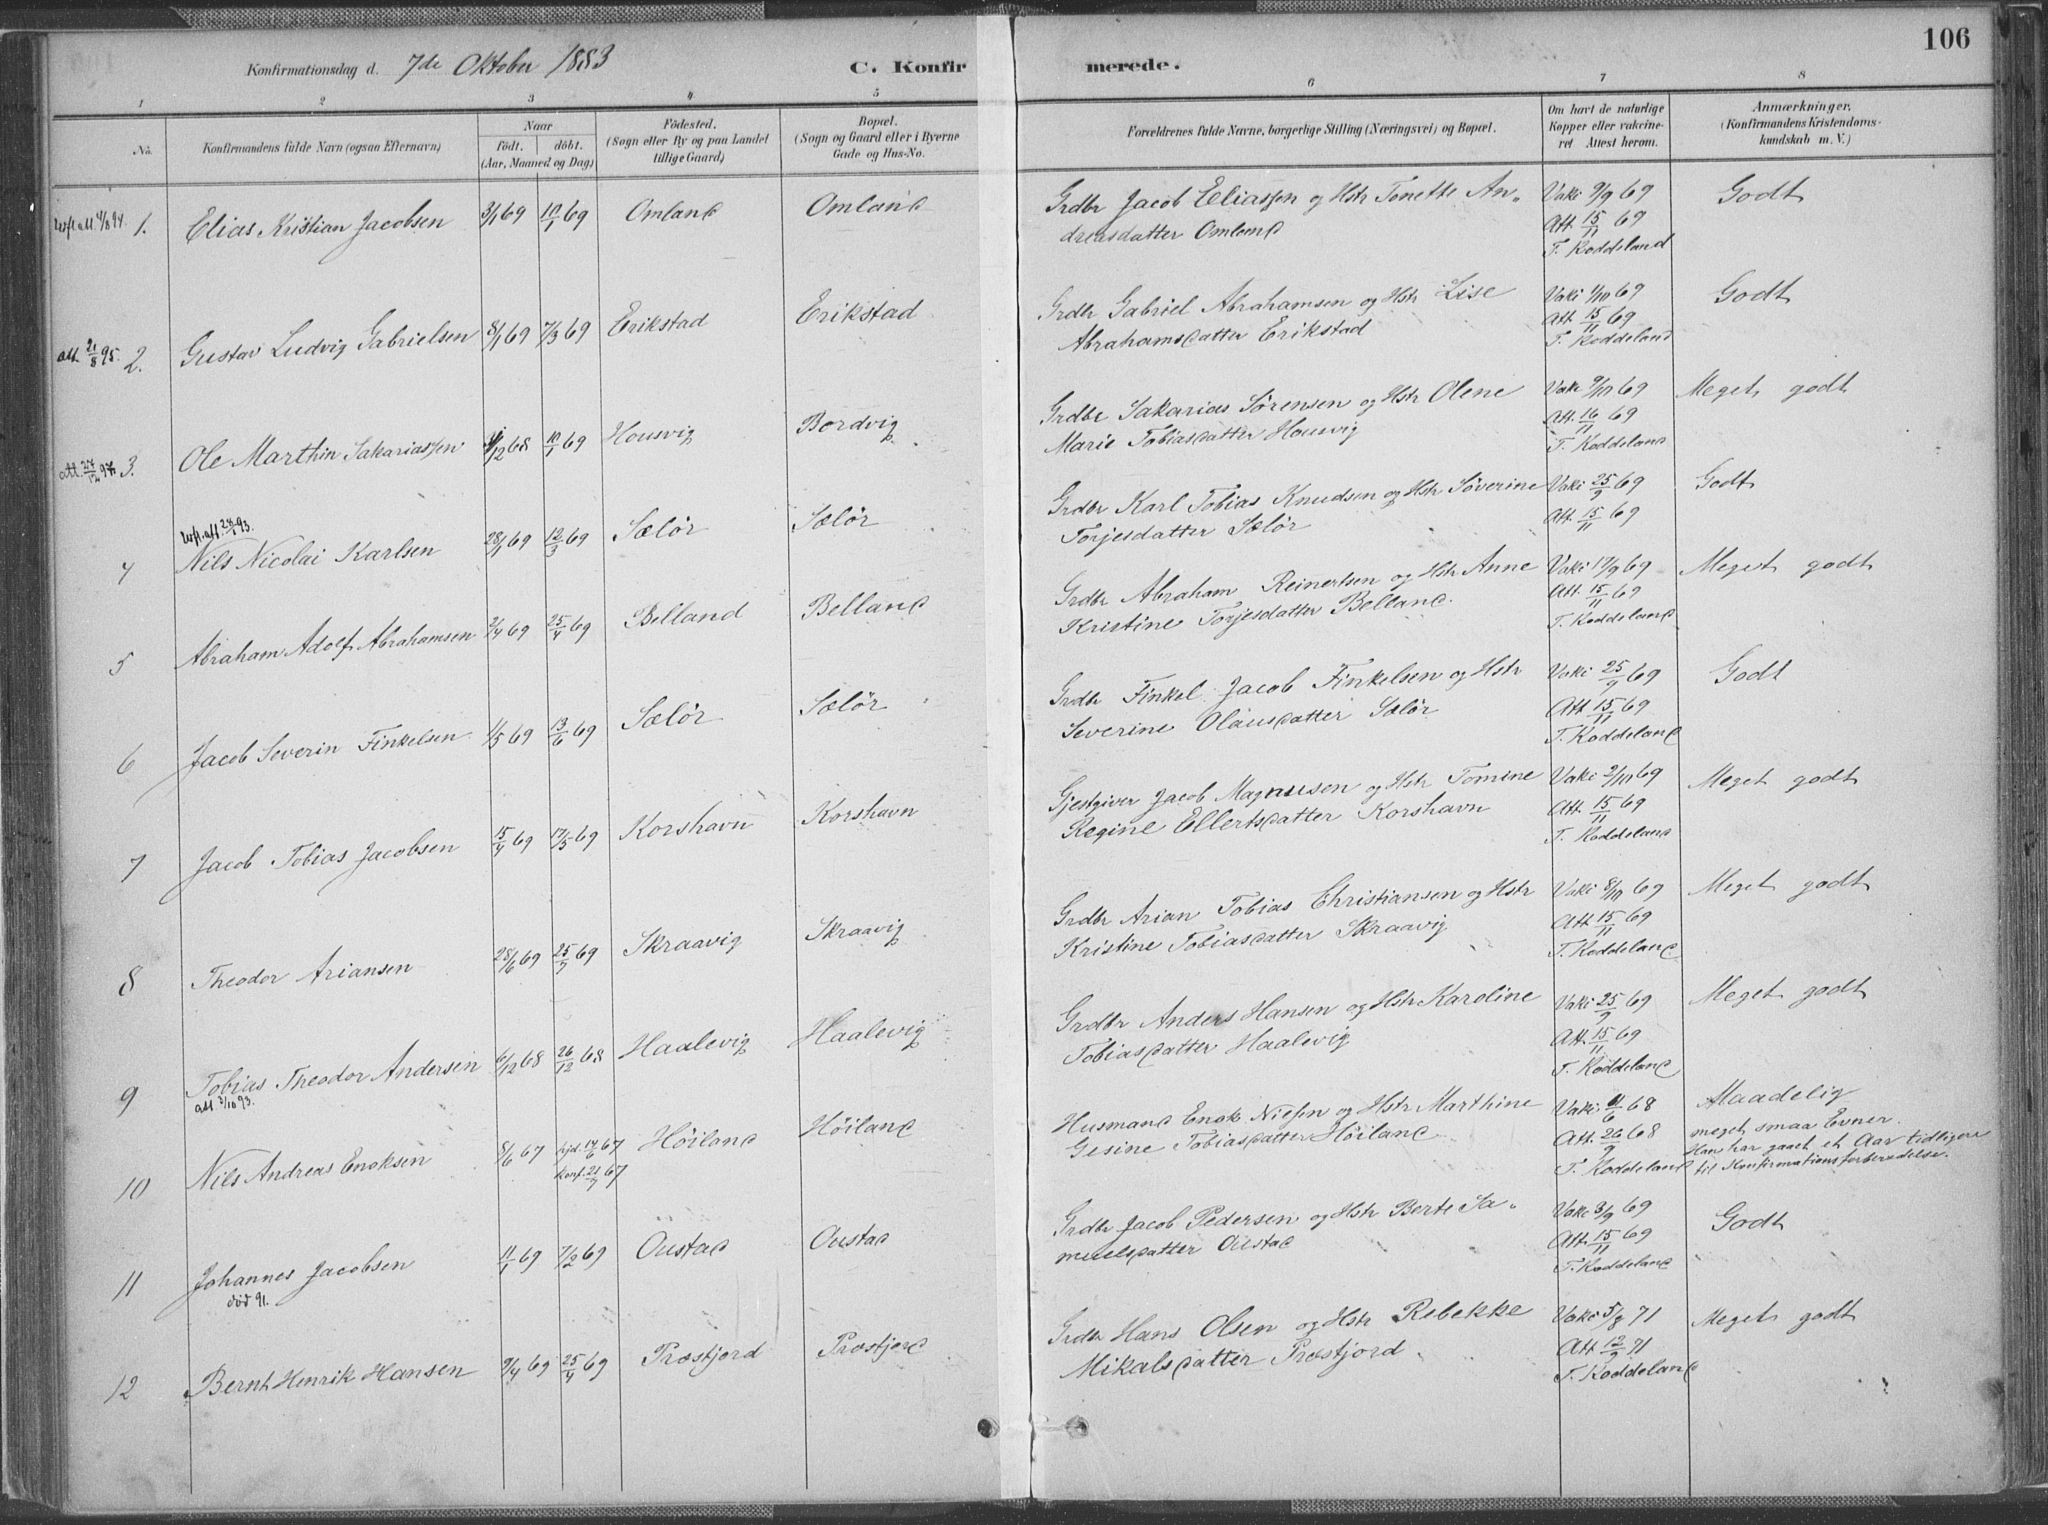 106
Konfirmationsdag d. 7de Oktober 1883 C. Konfirmerede.
1 2 3 4 5 6 7 8
No. Konfirmandens fulde Navn (ogsaa Efternavn)
Naar
födt. döbt.
(Aar, Maaned og Dag)
Födested.
(Sogn eller By og paa Landet
tillige Gaard)
Bopæl.
(Sogn og Gaard eller i Byerne
Gade og Hus-No.
Forældrenes fulde Navne, borgerlige Stilling (Næringsvei) og Bopæl.
Om havt de naturlige
Kopper eller vakcineret
Attest herom.
Anmærkninger.
(Konfirmandens Kristendomskundskab
m. V.)
1. Elias Kristian Jacobsen 3/1 69 10/1 69 Omland Omland
Grdbr Jacob Eliassen og Hstr Tonette An„
dreasdatter Omland
Vaki 9/9 69
Att 15/11 69
T. Koddeland
Godt
att. 21/8 95. 2. Gustav Ludvig Gabrielsen 8/1 69 7/3 69 Erikstad Erikstad
Grdbr Gabriel Abrahamsen og Hstr Lise
Abrahamsdatter Erikstad
Vaki 1/10 69
Att 15/11 69
T. Koddeland
Godt
att. 27/12 97. 3. Ole Marthin Sakariassen /12 68 10/1 69 Housvig Bordvig
Grdbr Sakarias Sörensen og Hstr Olene
Marie Tobiasdatter Housvig
Vaki 9/10 69
Att 16/11 69
T. Koddeland
Meget godt
4 Nils Nicolai Karlsen 28/1 69 12/3 69 Sælör Sælör
Grdbr Karl Tobias Knudsen og Hstr Söverine
Torjesdatter Sælör
Vaki 25/9 69
Att 15/11 69
Godt
5 Abraham Adolf Abrahamsen 2/4 69 25/4 69 Belland Belland
Grdbr Abraham Reinertsen og Hstr Anne
Kristine Torjesdatter Belland.
Vaki 17/9 69
Att 15/11 69
T. Koddeland
Meget godt
6 Jacob Severin Finkelsen 1/5 69 13/6 69 Sælör Sælör
Grdbr Finkel Jacob Finkelsen og Hstr
Severine Olausdatter Sælör
Vaki 25/9 69
Att 15/11 69
T. Koddeland
Godt
7 Jacob Tobias Jacobsen 15/4 69 17/5 69 Korshavn Korshavn
Gjestgiver Jacob Magnusen og Hstr Tomine
Regine Ellertsdatter Korshavn
Vaki 2/10 69
Att 15/11 69
T. Koddeland
Meget godt
8 Theodor Ariansen 28/6 69 25/7 69 Skraavig Skraavig
Grdbr Arian Tobias Christiansen og Hstr
Kristine Tobiasdatter Skraavig
Vaki 8/10 69
Att 15/11 69
T. Koddeland
Meget godt
9 Tobias Theodor Andersen 6/12 68 26/12 68 Haalevig Haalevig
Grdbr Anders Hansen og Hstr Karoline
Tobiasdatter Haalevig
Vaki 25/9 69
Att 15/11 69
T. Koddeland
Meget godt
att. 3/10 93.
10 Nils Andreas Enoksen 8/6 67 hjd. 17/6 67 Höiland Höiland
konf. 21/7 67
Husmand Enok Nilsen og Hstr Marthine
Gesine Tobiasdatter Höiland
Vaki 11/6 68
Att. 26/9 68
T. Koddeland
Maadelig
meget smaa Evner.
Han har gaaet et Aar tidligere
til Konfirmationsforberedelse.
11 Johannes Jacobsen 11/1 69 7/2 69 Oustad Oustad
död 91.
Grdbr Jacob Pedersen og Hstr Berte Sa„
muelsdatter Oustad
Vaki 3/9 69
Att 15/11 69
T. Koddeland
Godt
12 Bernt Henrik Hansen 9/4 69 25/4 69 Præstjord Præstjord
Grdbr Hans Olsen og Hstr Rebekke
Mikalsdatter Præstjord
Vaki 5/9 71
Att 12/9 71
T. Koddeland
Meget godt